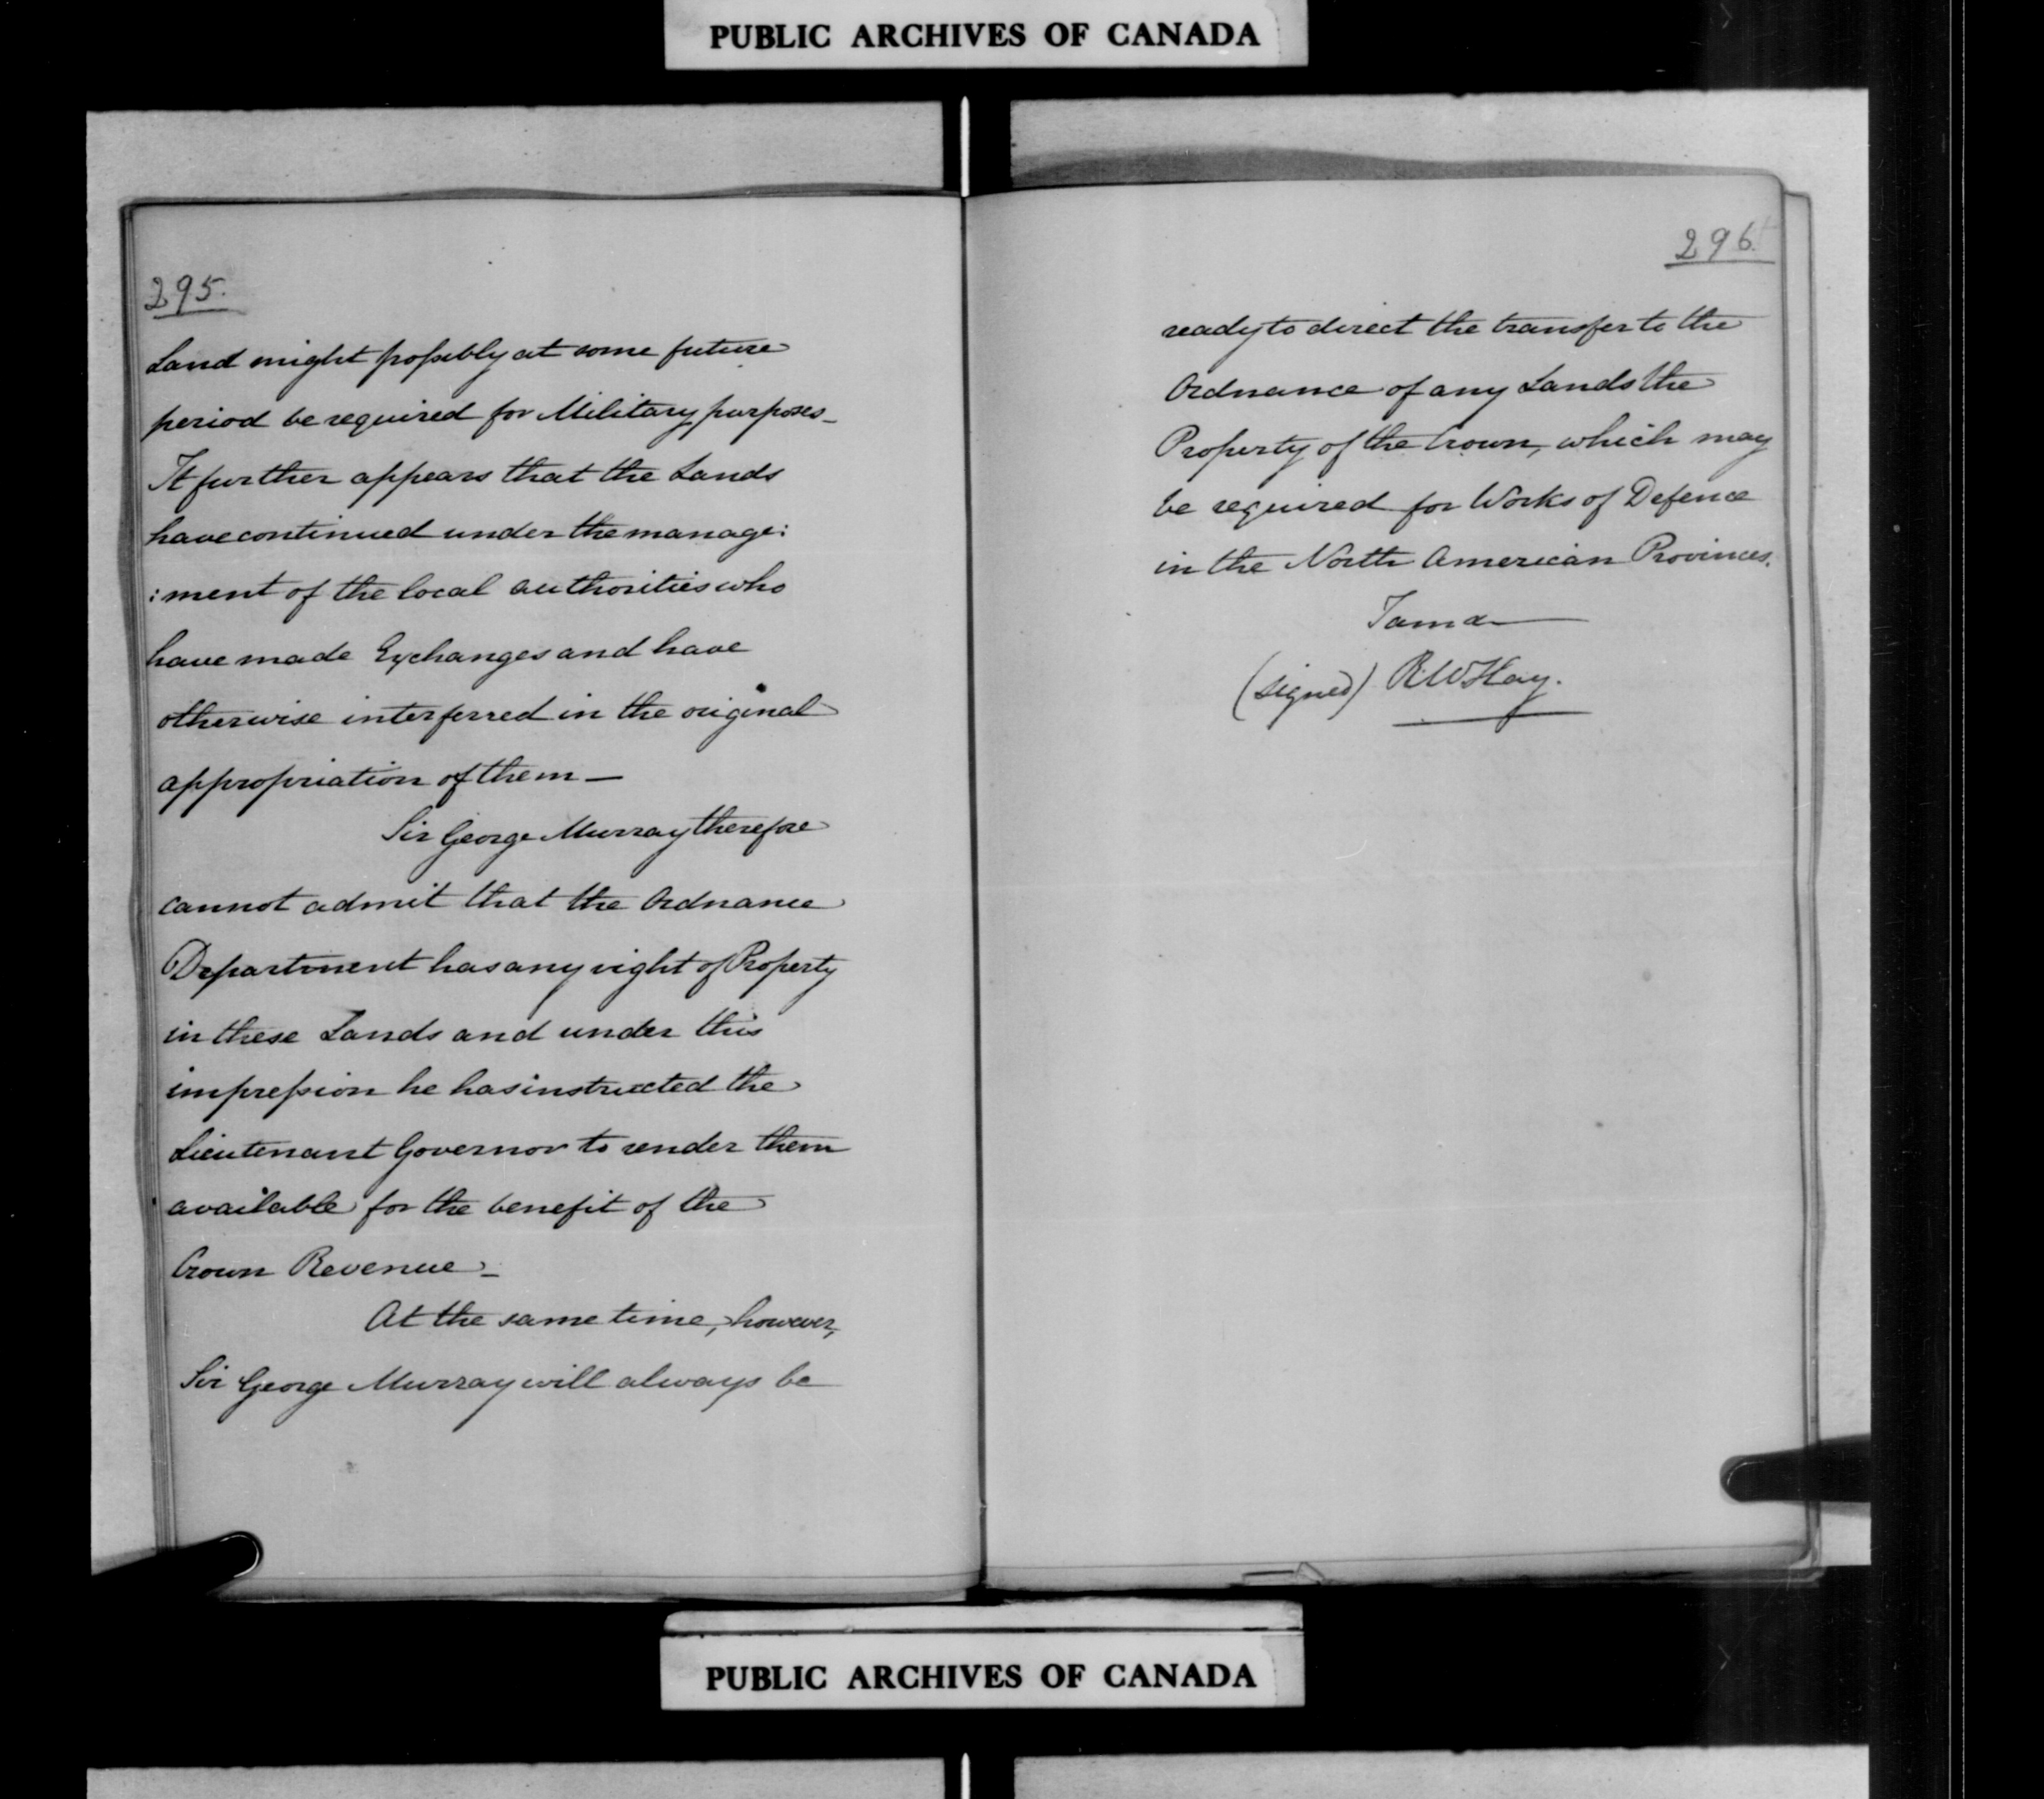 PUBLIC ARCHIVES OF CANADA
295.
Land might possibly at some future
period be required for Military purposes_
It further appears that the Lands
have continued under the manage:
:ment of the local authorities who
have made Exchanges and have
otherwise interferred in the original
appropriation of them_
Sir George Murray therefore
cannot admit that the Ordnance
Department has any right of Property
in these Lands and under this
impression he has instructed the
Lieutenant Governor to render them
available for the benefit of the
Crown Revenue_
At the same time, however,
Sir George Murray will always be
296.
ready to direct the transfer to the
Ordnance of any Lands the
Property of the Crown, which may
be required for Works of Defence
in the North American Provinces.
I am &
(signed) R.W Hay.
PUBLIC ARCHIVES OF CANADA